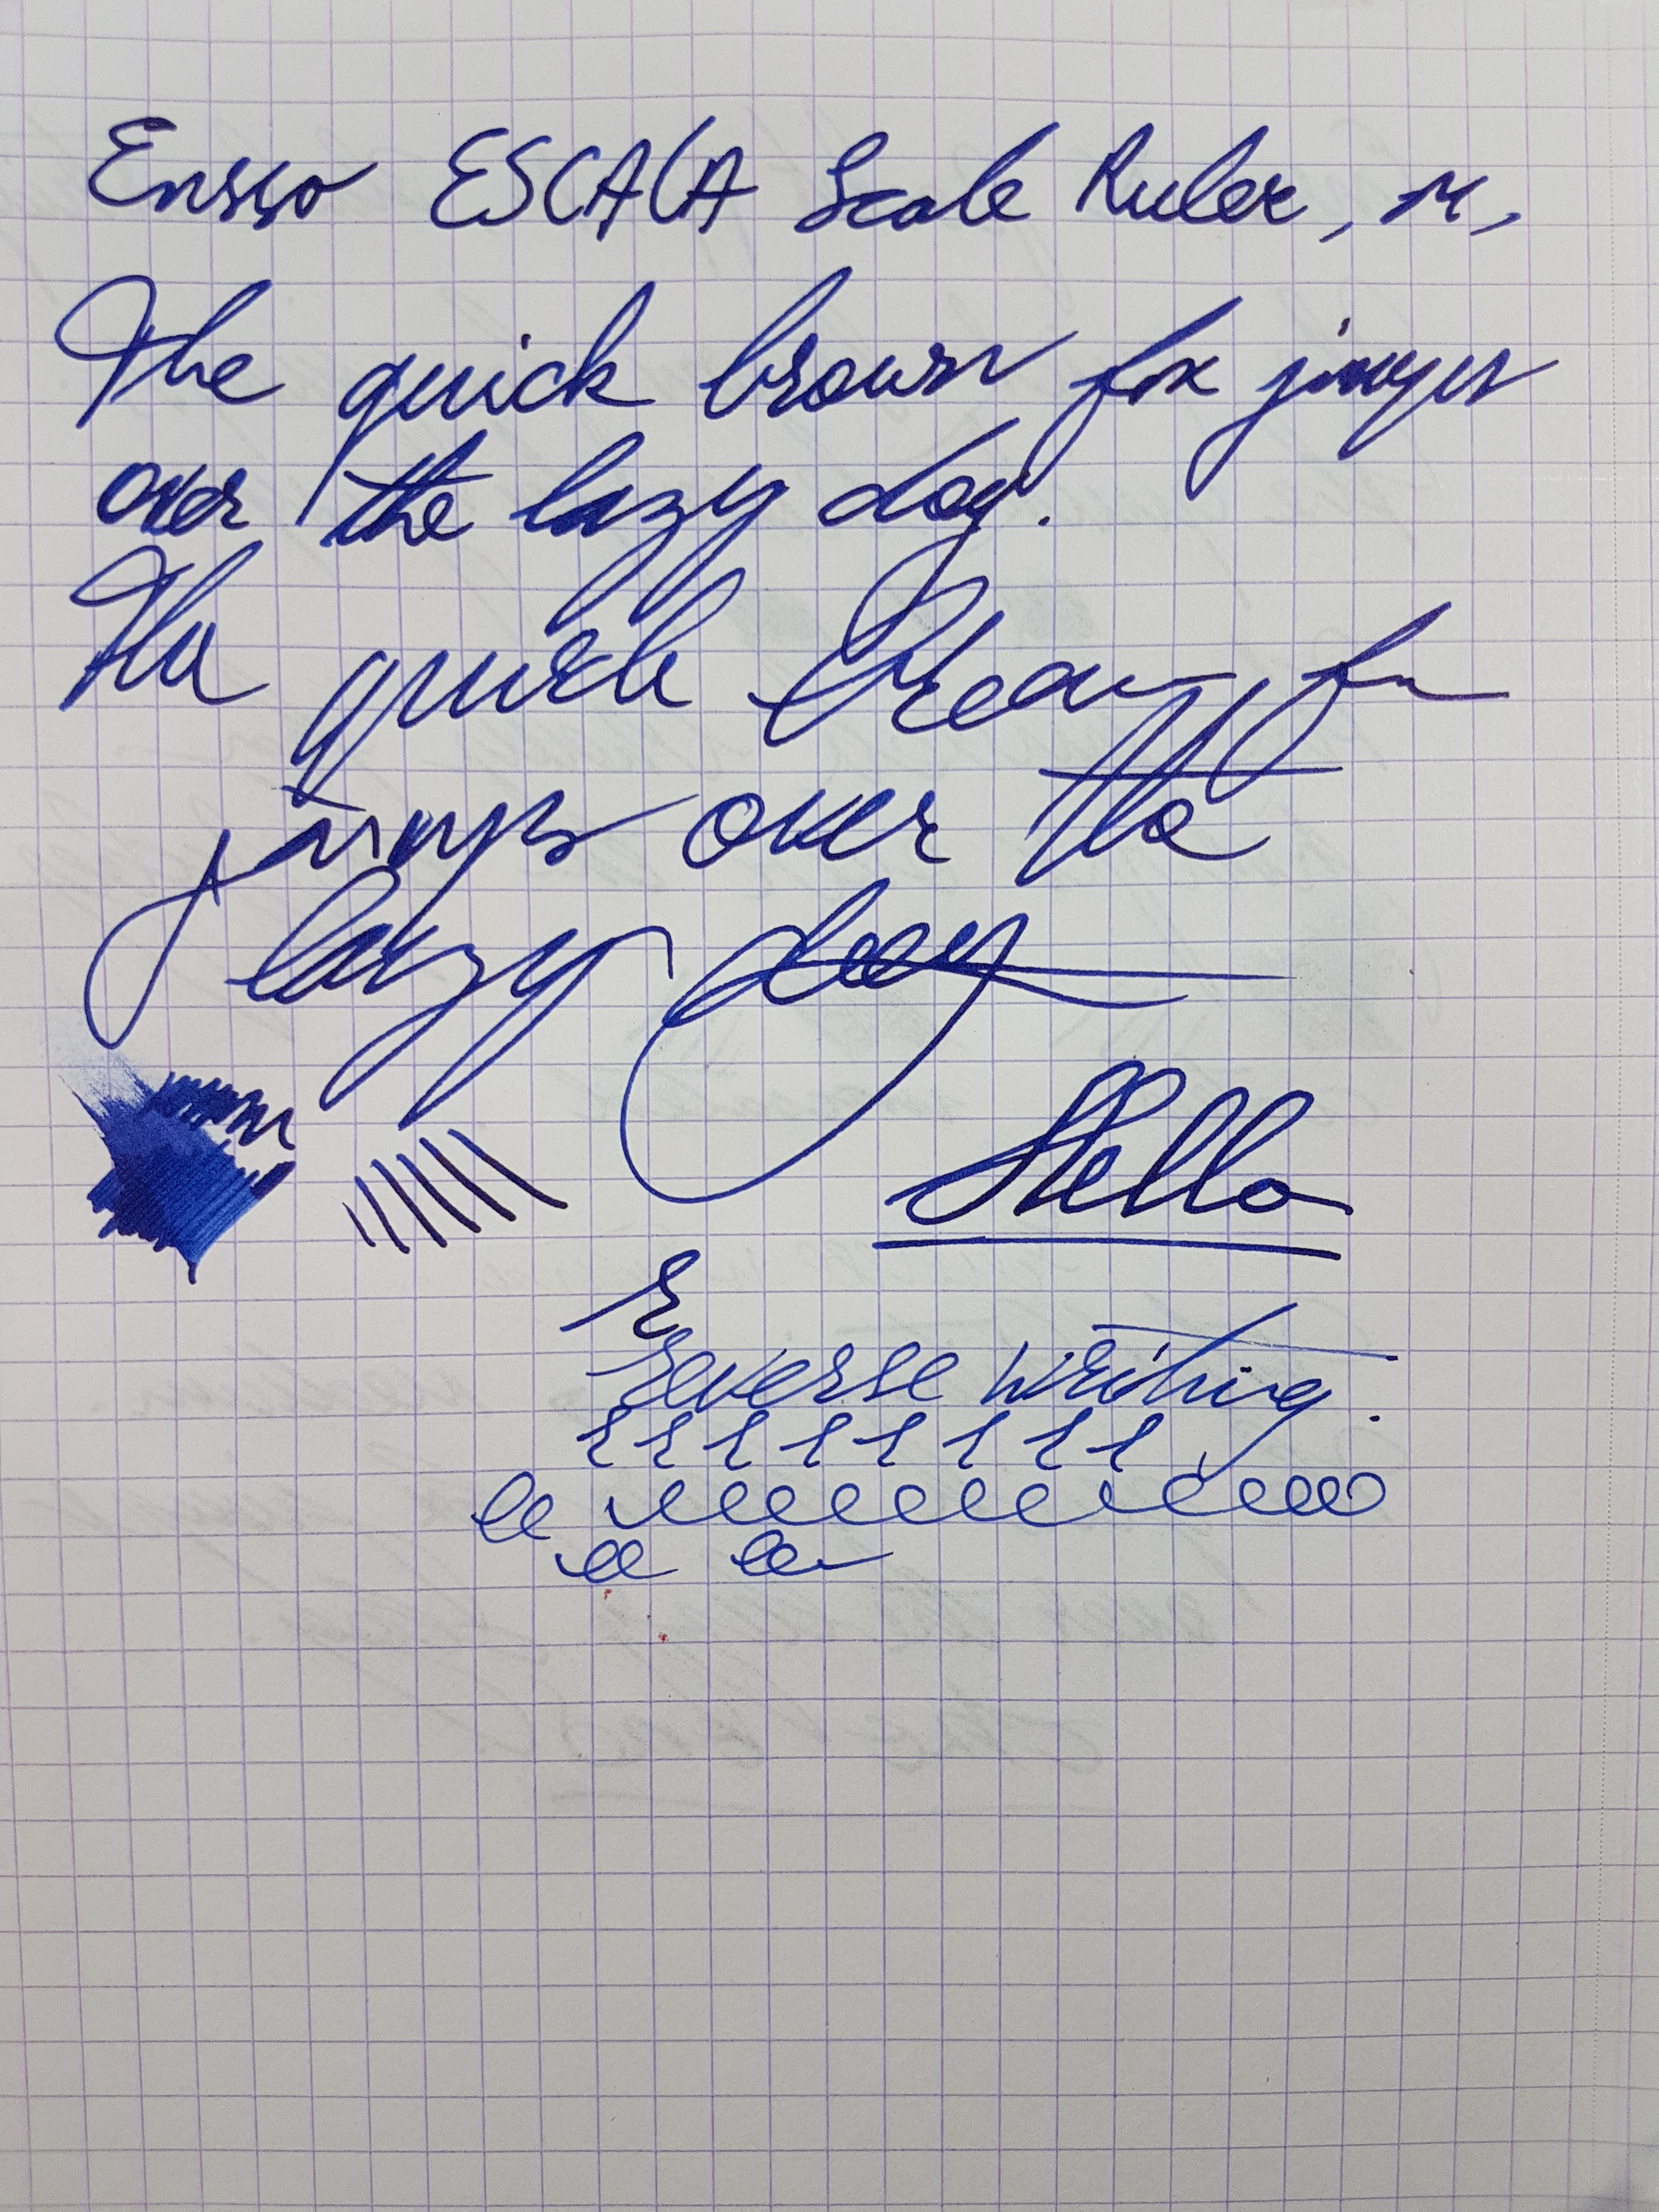 Ensso ESCALA Scale Ruler, M,
The quick brown fox jumps
over the lazy dog.
The quick brown fox
jumps over the
lazy dog
Hello
Reverse writing.